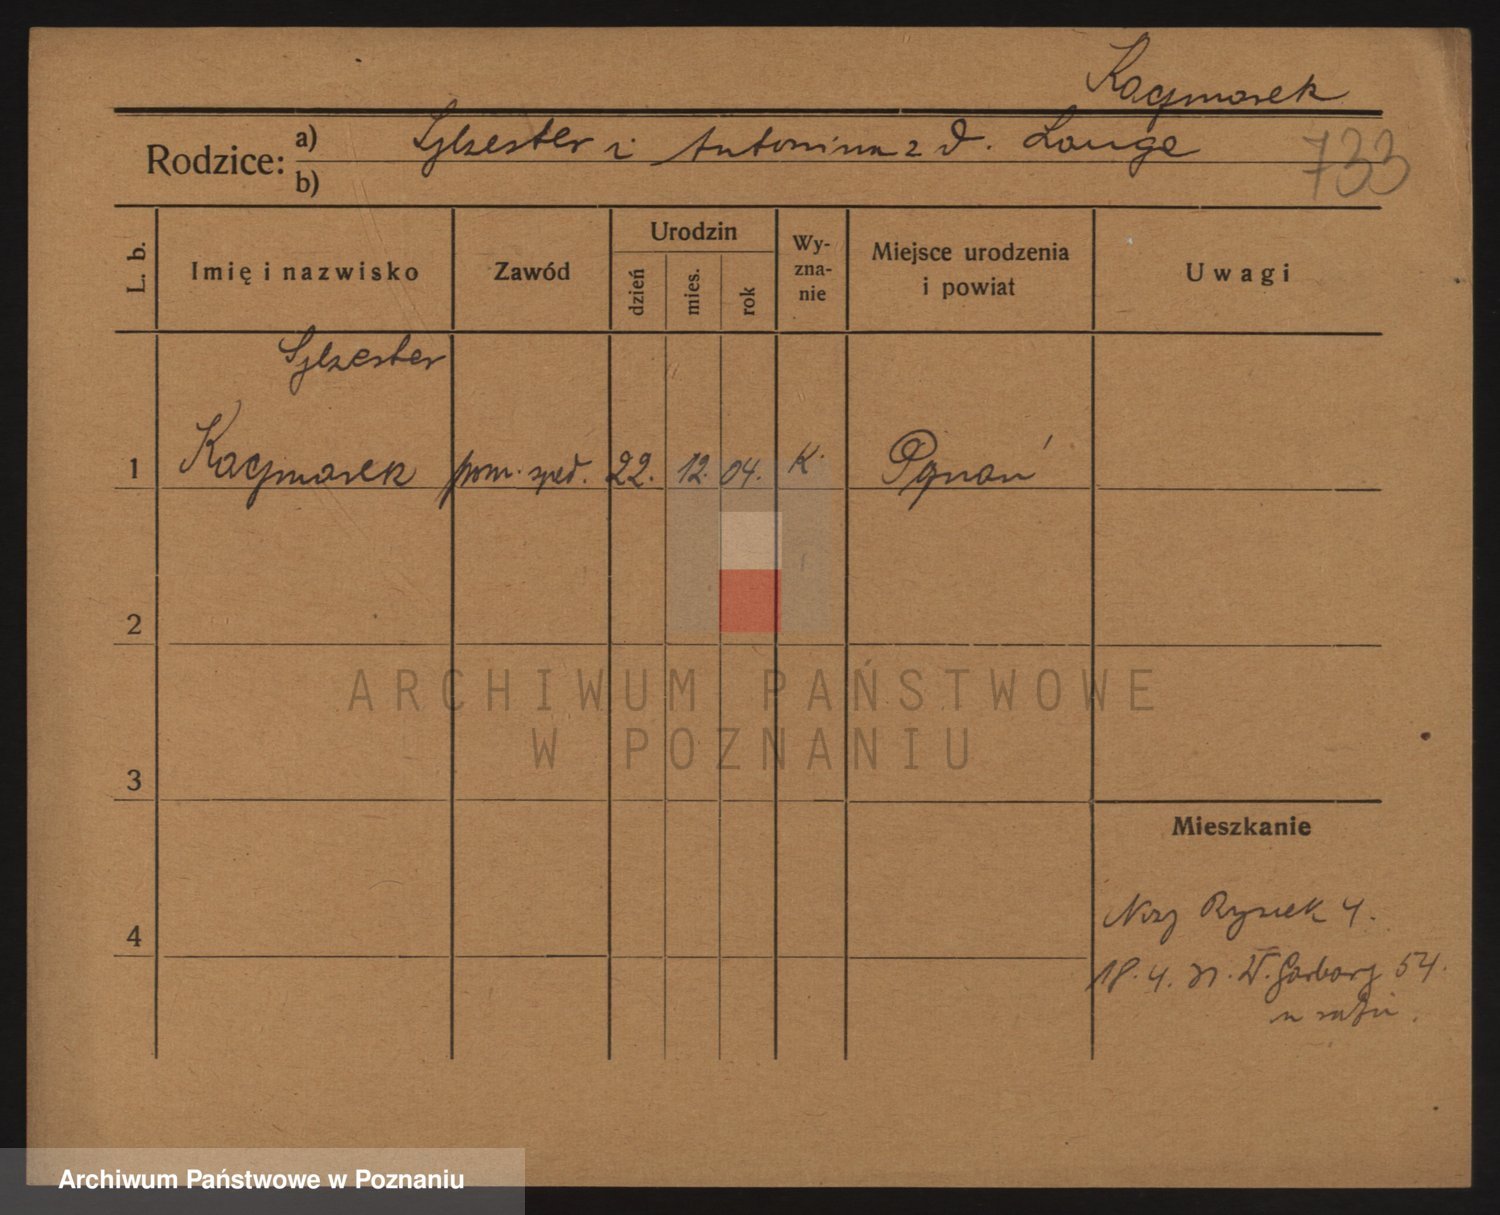 Kaczmarek
Rodzice: a) Sylwester i Antonina z d. Lange
b)
733
L. b.
Imię i nazwisko
Zawód
Urodzin
dzień
mies.
rok
Wy-
zna-
nie
Miejsce urodzenia
i powiat
Uwagi
Sylwester
1 Kaczmarek pom. 22. 12. 04. K. Poznań
2
3
4
ARCHIWUM PAŃSTWOWE
W POZNANIU
Mieszkanie
Rynek 4.
18. 4. 31. W. Garbary 54.
Archiwum Państwowe w Poznaniu